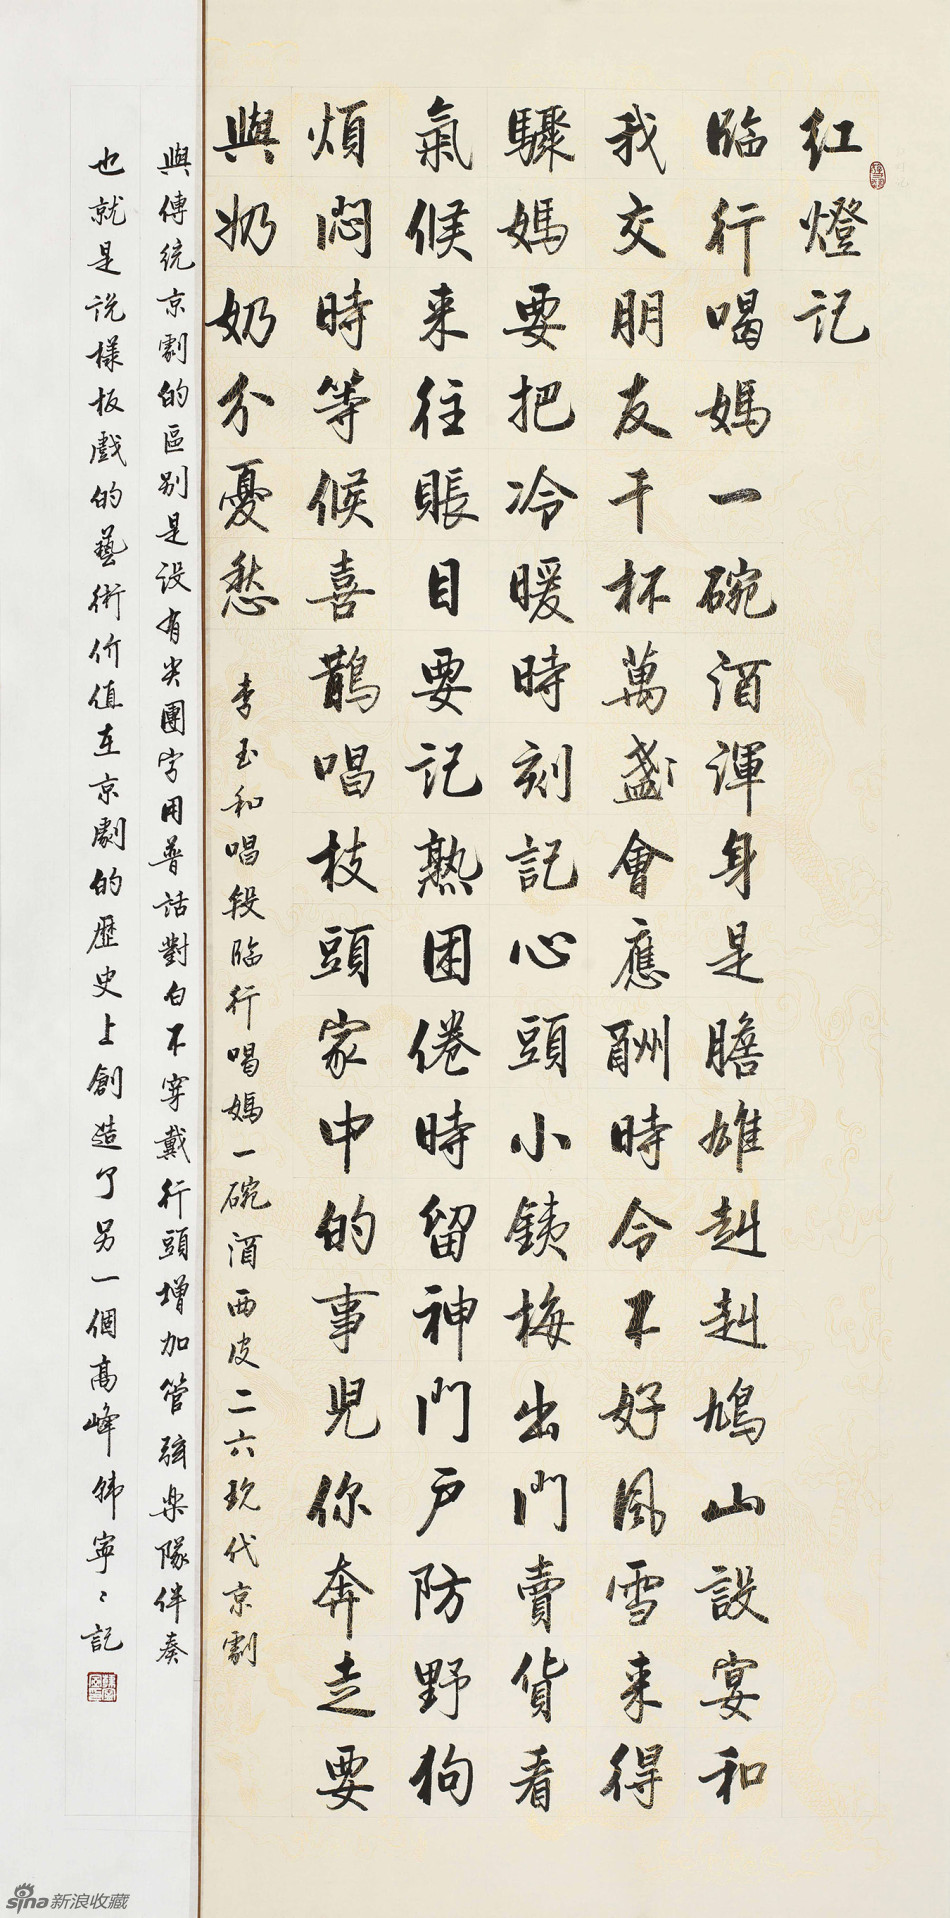 红燈记
臨行喝媽一碗酒渾身是膽雄赳赳鳩山設宴和
我交朋友千杯萬盞會應酬時令不好風雪来得
驟媽要把冷暖時刻記心頭小鐵梅出門賣貨看
氣候来往賬目要记熟困倦時留神門户防野狗
煩悶時等候喜鵲唱枝頭家中的事児你奔走要
與奶奶分憂愁
李玉和唱段臨行喝媽一碗酒西皮二六现代京劇
與傳統京劇的區别是没有尖團字用普话對白不穿戴行頭增加管弦樂隊伴奏
也就是说樣板戲的藝術价值在京劇的歷史上創造了另一個高峰韩寧寧記
sina新浪收藏